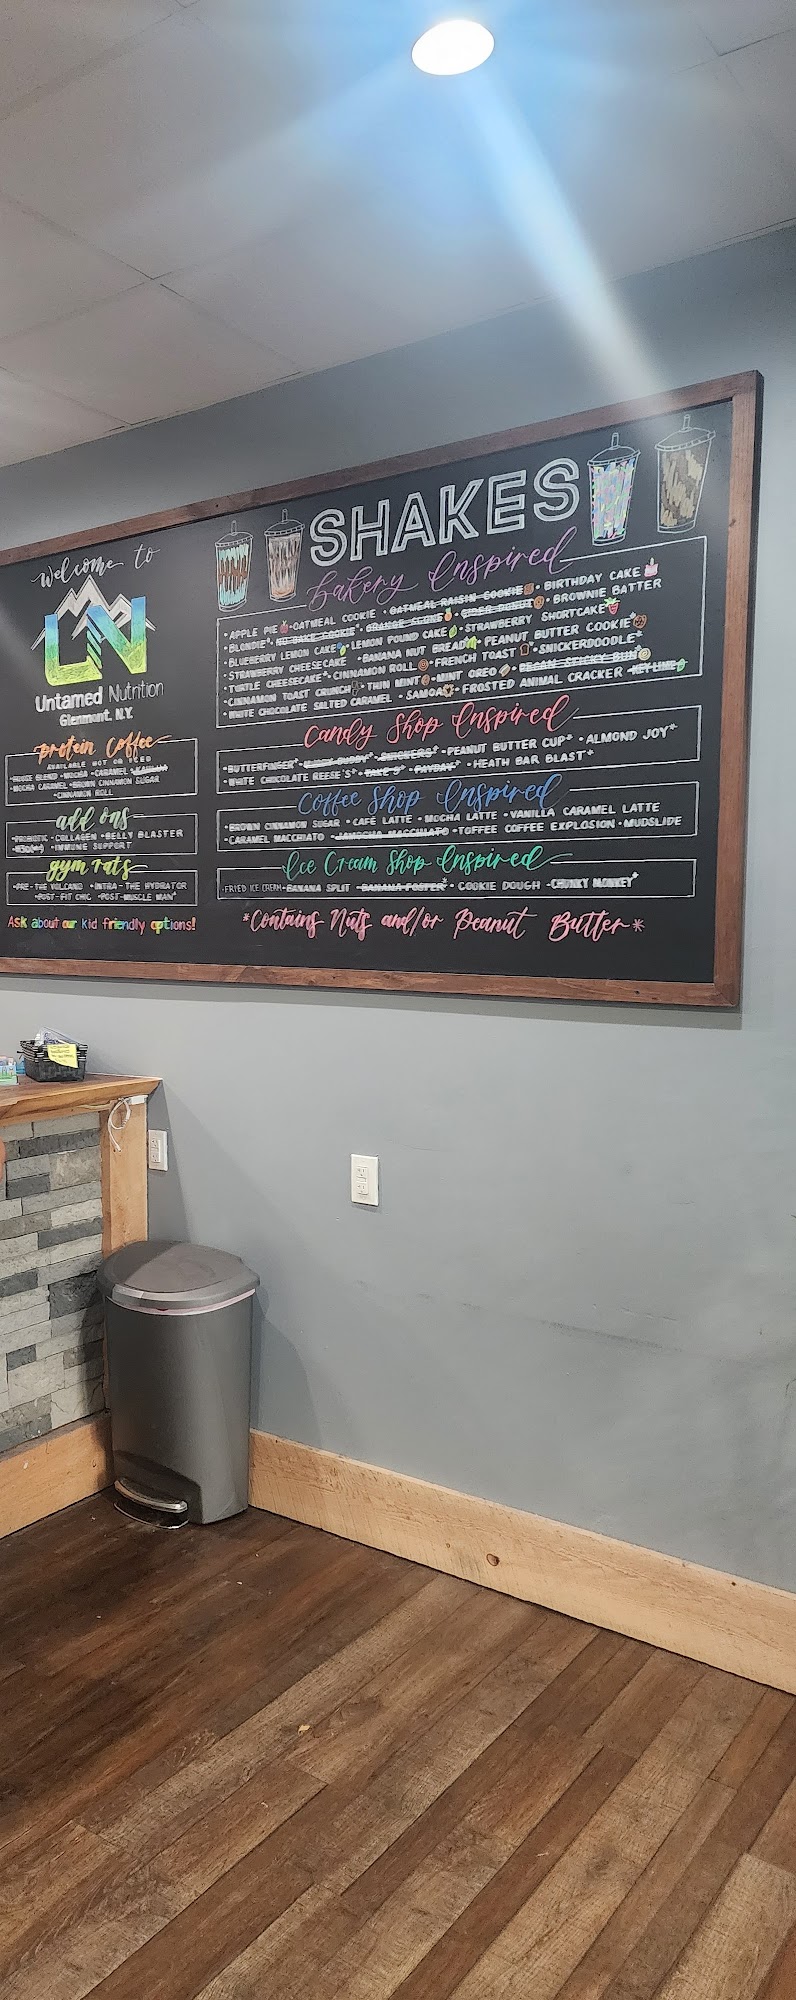 Welcome to
UN
Untamed Nutrition
Glenmont, N.Y.
Protein Coffee
AVAILABLE HOT OR ICED
•HOUSE BLEND •MOCHA •CARAMEL •VANILLA
MOCHA CARAMEL •BROWN CINNAMON SUGAR
•CINNAMON ROLL
add ons
•PROBIOTIC •COLLAGEN •BELLY BLASTER
•IMMUNE SUPPORT
gym rats
•PRE-THE VOLCANO •INTRA-THE HYDRATOR
•POST-FIT CHIC •POST-MUSCLE MAN*
Ask about our kid friendly options!
SHAKES
Bakery Inspired
•APPLE PIE •OATMEAL COOKIE •OATMEAL RAISIN COOKIE •BIRTHDAY CAKE
•BLONDIE* •NO BAKE COOKIE* •ORANGE SCONE •CIDER DONUT •BROWNIE BATTER
•BLUEBERRY LEMON CAKE •LEMON POUND CAKE •STRAWBERRY SHORTCAKE
•STRAWBERRY CHEESECAKE •BANANA NUT BREAD •PEANUT BUTTER COOKIE*
•TURTLE CHEESECAKE* •CINNAMON ROLL •FRENCH TOAST •SNICKERDOODLE*
•CINNAMON TOAST CRUNCH •THIN MINT •MINT OREO •PECAN STICKY BUN
•WHITE CHOCOLATE SALTED CARAMEL •SAMOA •FROSTED ANIMAL CRACKER •KEY LIME
Candy Shop Inspired
•BUTTERFINGER* •NUTTY BUDDY* •SNICKERS* •PEANUT BUTTER CUP* •ALMOND JOY*
•WHITE CHOCOLATE REESE'S* •TAKE 5* •PAYDAY* •HEATH BAR BLAST*
Coffee Shop Inspired
•BROWN CINNAMON SUGAR •CAFÉ LATTE •MOCHA LATTE •VANILLA CARAMEL LATTE
•CARAMEL MACCHIATO •JAMOCHA MACCHIATO •TOFFEE COFFEE EXPLOSION •MUDSLIDE
Ice Cream Shop Inspired
•FRIED ICE CREAM •BANANA SPLIT •BANANA FOSTER* •COOKIE DOUGH •CHUNKY MONKEY*
*Contains Nuts and/or Peanut Butter*